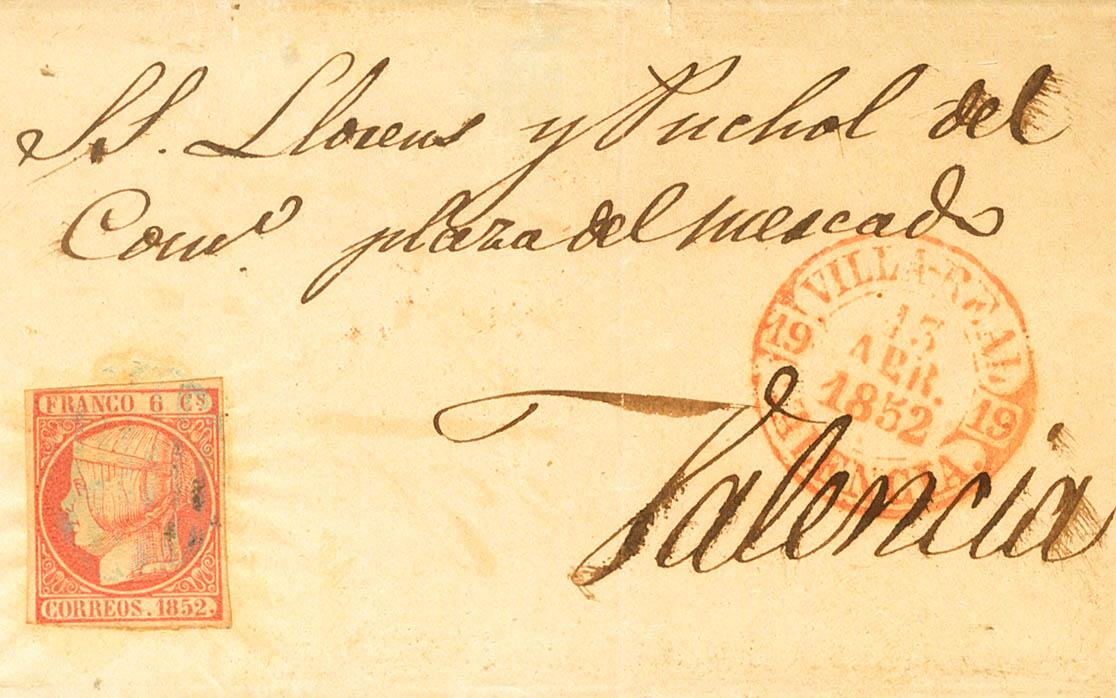 SS. Llorens y Puchol del
Como. plaza del mercado
VILLA-REAL
19 19
15
ABR.
1852
VALENCIA.
Valencia
FRANCO 6 Cs
CORREOS. 1852.